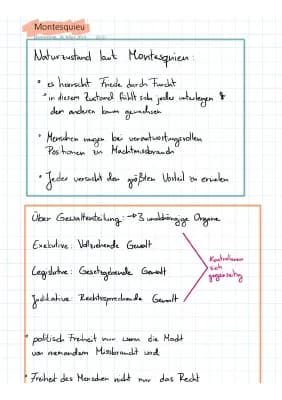 Montesquieu
Naturzustand laut Montesquieu:
• es herrscht Friede durch Furcht
• in diesem Zustand fühlt sich jeder unterlegen &
den anderen kaum gewachsen
• Menschen neigen bei verantwortungsvollen
Positionen zu Machtmissbrauch
• Jeder versucht den größten Vorteil zu erzielen
Über Gewaltenteilung: → 3 unabhängige Organe
Exekutive: Vollziehende Gewalt
Legislative: Gesetzgebende Gewalt
Judikative: Rechtssprechende Gewalt
Kontrollieren
sich
gegenseitig
• politisch Freiheit nur wenn die Macht
von niemandem Missbraucht wird
• Freiheit des Menschen nicht nur das Recht